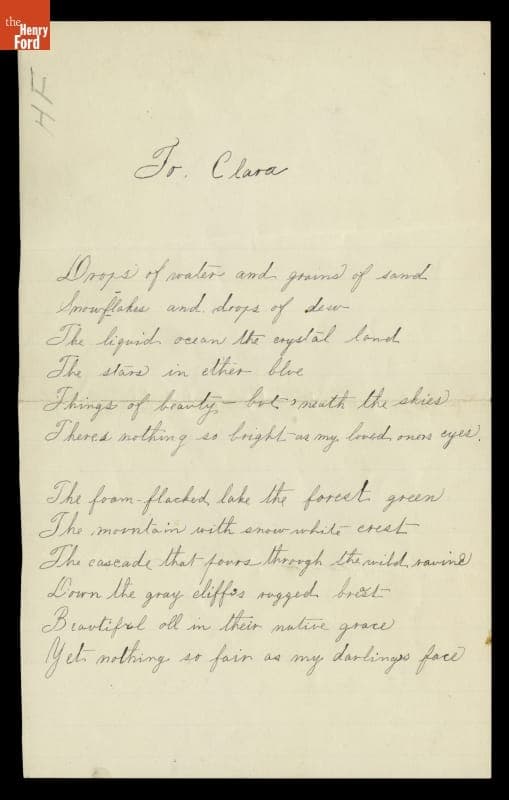 the
Henry
Ford
HF
To. Clara
Drops of water and grains of sand
Snowflakes and drops of dew
The liquid ocean the crystal land
The stars in ether blue
Things of beauty - but 'neath the skies
Theres nothing so bright as my loved ones eyes.
The foam-flacked lake the forest green
The mountain with snow white crest
The cascade that pours through the wild ravine
Down the gray cliffs rugged brest
Beautiful all in their native grace
Yet nothing so fair as my darlings face